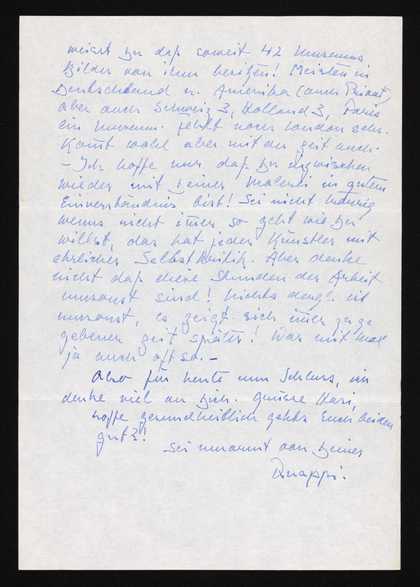 weisst Du daß soweit 42 Museums
Bilder von ihm besitzen! Meisten in
Deutschland u. Amerika (auch Privat)
aber auch Schweiz 3, Holland 3, Paris
ein Museum. fehlt noch London sehr.
Kommt wohl aber mit der Zeit auch.
- Ich hoffe nur daß Du inzwischen
wieder mit Deiner Malerei in gutem
Einverständnis bist! Sei nicht traurig
wenns nicht immer so geht wie Du
willst, das hat jeder Künstler mit
ehrlicher Selbstkritik. Aber denke
nicht daß diese Stunden der Arbeit
umsonst sind! Nichts ist
umsonst, es zeigt sich immer zu ge
gebener Zeit später! War mit
ja auch oft so.-
Also für heute nun Schluss, ich
denke viel an Dich. Grüsse
hoffe gesundheitlich gehts Euch beiden
gut?!
Sei umarmt von Deiner
Knappi.